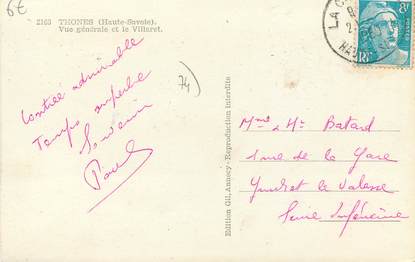 6€
2163 THONES (Haute-Savoie).
Vue générale et le Villaret.
Contrée admirable
Temps superbe
Souvenir
Paul
74
Edition Gil, Annecy - Reproduction interdite
LA C
8F
RF
Mme & Mr Batard
rue de la Gare
le Valasse
Seine Inférieure